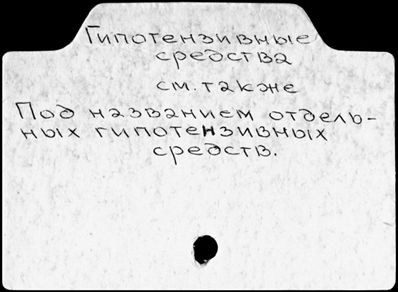 Гипотензивные
средства
см. также
Под названием отдель-
ных гипотензивных
средств.